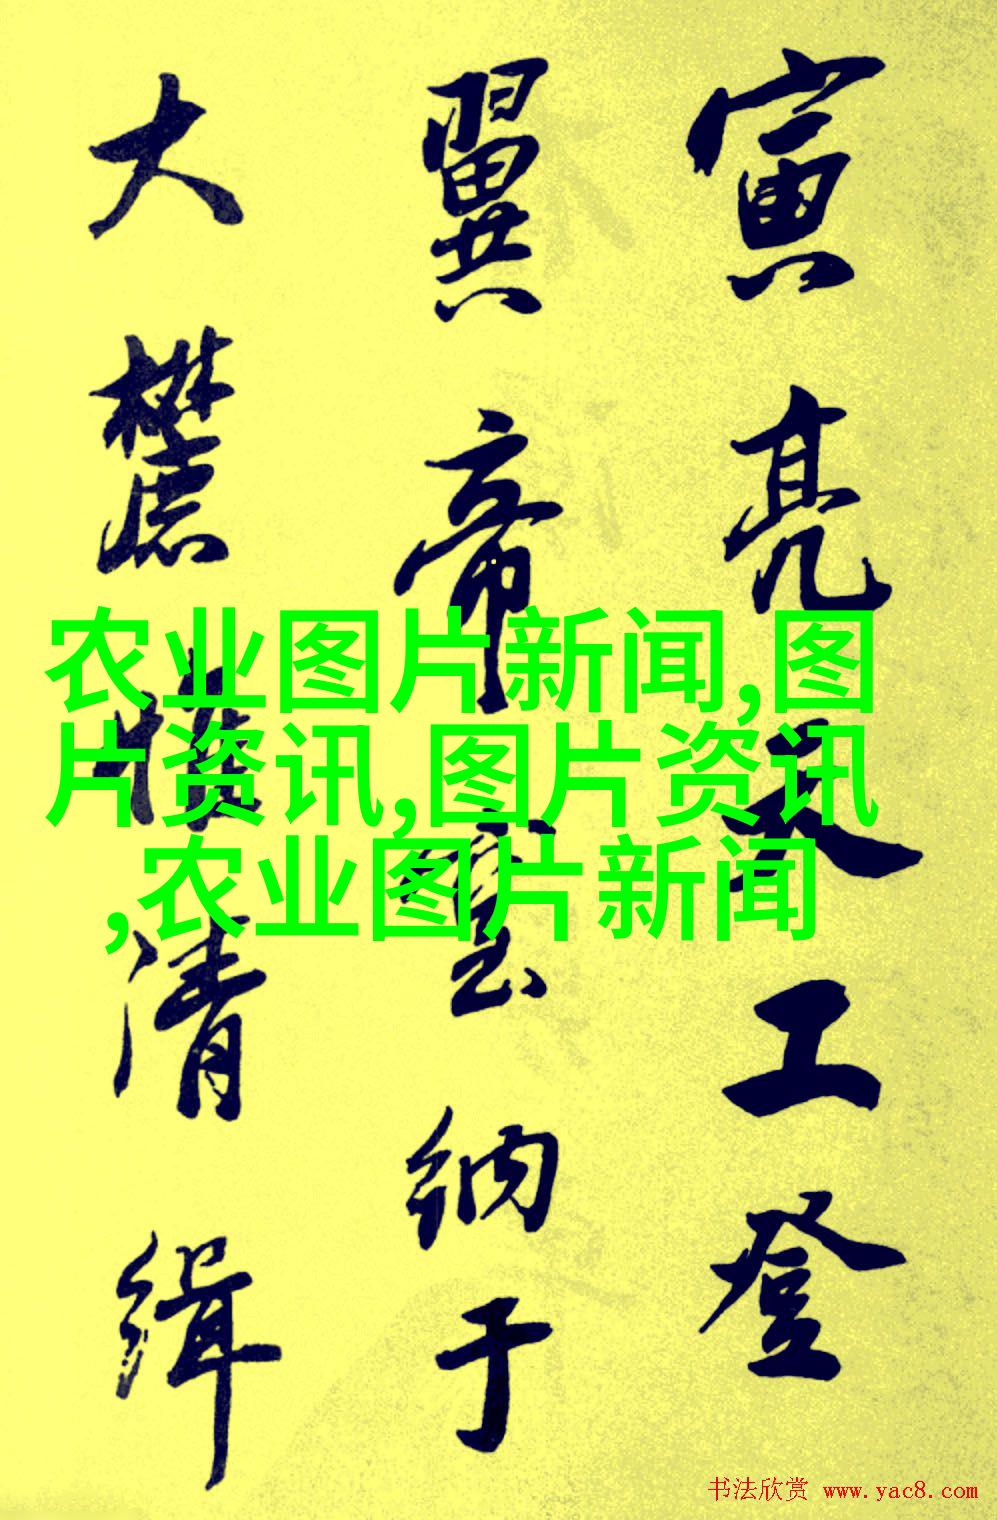 寅亮天工登
翼帝室纳于
大麓清缉
农业图片新闻,图
片资讯,图片资讯
,农业图片新闻
书法欣赏 www.yac8.com